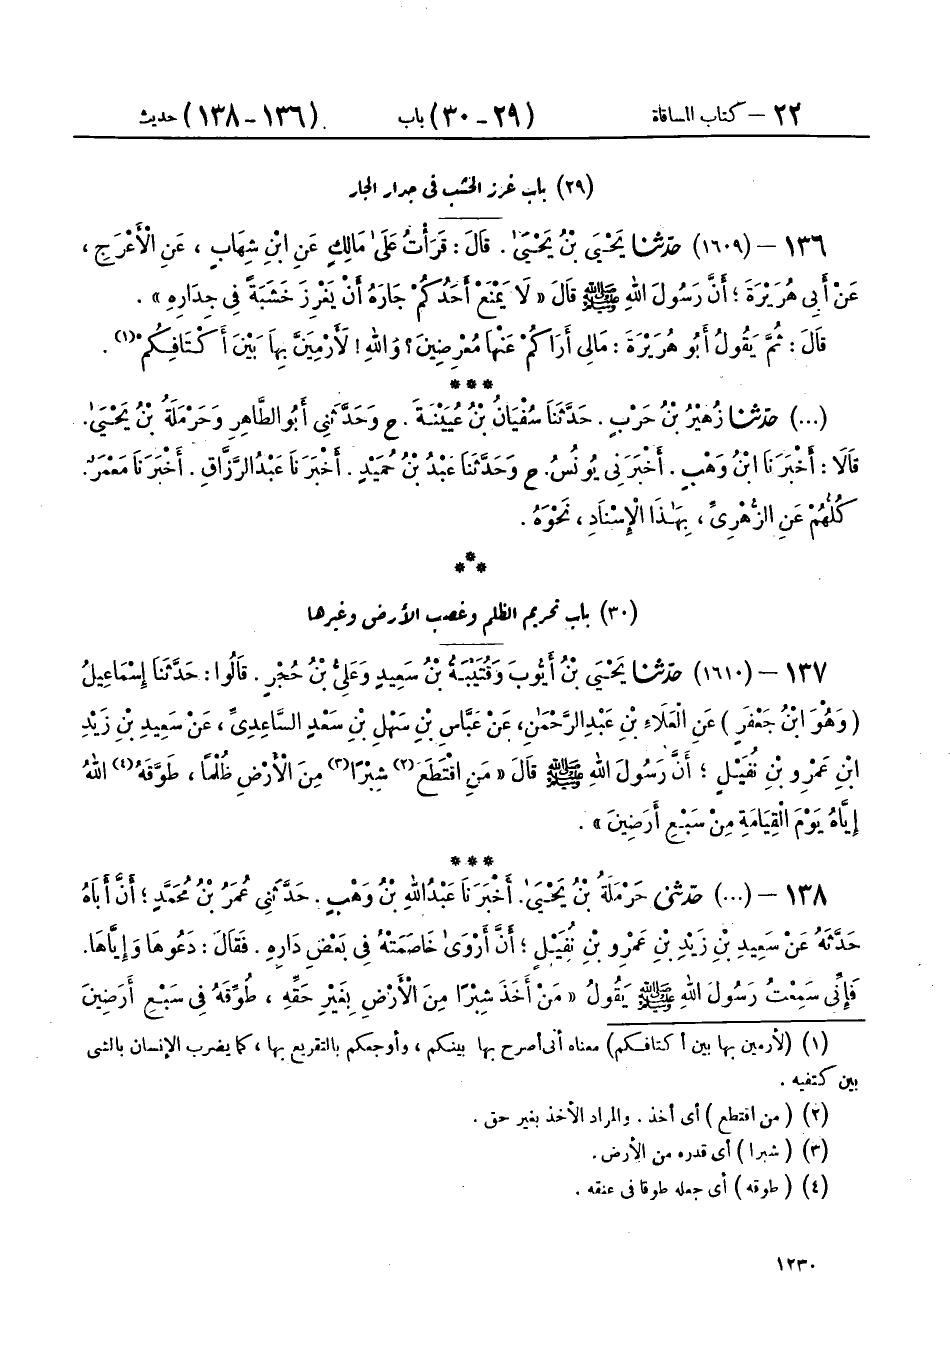 ٢٢ – كتاب المساقاة (٢٩ - ٣٠) باب (١٣٦ - ١٣٨) حديث
(٢٩) باب غرز الخشب فى جدار الجار
١٣٦ – (١٦٠٩) حَدَّثَنَا يَحْيَىٰ بْنُ يَحْيَىٰ . قَالَ : قَرَأْتُ عَلَىٰ مَالِكٍ عَنِ ابْنِ شِهَابٍ ، عَنِ الْأَعْرَجِ ،
عَنْ أَبِى هُرَيْرَةَ ؛ أَنَّ رَسُولَ اللهِ ﷺ قَالَ « لَا يَمْنَعْ أَحَدُكُمْ جَارَهُ أَنْ يَغْرِزَ خَشَبَةً فِى جِدَارِهِ » .
قَالَ : ثُمَّ يَقُولُ أَبُو هُرَيْرَةَ : مَالِى أَرَاكُمْ عَنْهَا مُعْرِضِينَ ؟ وَاللهِ ! لَأَرْمِيَنَّ بِهَا بَيْنَ أَكْتَافِكُمْ (١) .
***
(...) حَدَّثَنَا زُهَيْرُ بْنُ حَرْبٍ . حَدَّثَنَا سُفْيَانُ بْنُ عُيَيْنَةَ . ح وَحَدَّثَنِى أَبُو الطَّاهِرِ وَحَرْمَلَةُ بْنُ يَحْيَىٰ .
قَالَا : أَخْبَرَنَا ابْنُ وَهْبٍ . أَخْبَرَنِى يُونُسُ . ح وَحَدَّثَنَا عَبْدُ بْنُ حُمَيْدٍ . أَخْبَرَنَا عَبْدُ الرَّزَّاقِ . أَخْبَرَنَا مَعْمَرٌ .
كُلُّهُمْ عَنِ الزُّهْرِىِّ ، بِهَٰذَا الْإِسْنَادِ ، نَحْوَهُ .
***
(٣٠) باب تحريم الظلم وغصب الأرض وغيرها
١٣٧ – (١٦١٠) حَدَّثَنَا يَحْيَىٰ بْنُ أَيُّوبَ وَقُتَيْبَةُ بْنُ سَعِيدٍ وَعَلِىُّ بْنُ حُجْرٍ . قَالُوا : حَدَّثَنَا إِسْمَاعِيلُ
( وَهُوَ ابْنُ جَعْفَرٍ ) عَنِ الْعَلَاءِ بْنِ عَبْدِ الرَّحْمَٰنِ ، عَنْ عَبَّاسِ بْنِ سَهْلِ بْنِ سَعْدٍ السَّاعِدِىِّ ، عَنْ سَعِيدِ بْنِ زَيْدِ
ابْنِ عَمْرِو بْنِ نُفَيْلٍ ؛ أَنَّ رَسُولَ اللهِ ﷺ قَالَ « مَنِ اقْتَطَعَ (٢) شِبْرًا (٣) مِنَ الْأَرْضِ ظُلْمًا ، طَوَّقَهُ (٤) اللهُ
إِيَّاهُ يَوْمَ الْقِيَامَةِ مِنْ سَبْعِ أَرَضِينَ » .
***
١٣٨ – (...) حَدَّثَنِى حَرْمَلَةُ بْنُ يَحْيَىٰ . أَخْبَرَنَا عَبْدُ اللهِ بْنُ وَهْبٍ . حَدَّثَنِى عُمَرُ بْنُ مُحَمَّدٍ ؛ أَنَّ أَبَاهُ
حَدَّثَهُ عَنْ سَعِيدِ بْنِ زَيْدِ بْنِ عَمْرِو بْنِ نُفَيْلٍ ؛ أَنَّ أَرْوَىٰ خَاصَمَتْهُ فِى بَعْضِ دَارِهِ . فَقَالَ : دَعُوهَا وَإِيَّاهَا .
فَإِنِّى سَمِعْتُ رَسُولَ اللهِ ﷺ يَقُولُ « مَنْ أَخَذَ شِبْرًا مِنَ الْأَرْضِ بِغَيْرِ حَقِّهِ ، طُوِّقَهُ فِى سَبْعِ أَرَضِينَ
(١) (لأرمين بها بين أكتافكم) معناه أنى أصرح بها بينكم ، وأوجعكم بالتقريع بها ، كما يضرب الإنسان بالشى
بين كتفيه .
(٢) ( من اقتطع ) أى أخذ . والمراد الأخذ بغير حق .
(٣) ( شبرا ) أى قدره من الأرض .
(٤) ( طوقه ) أى جعله طوقا فى عنقه .
١٢٣٠